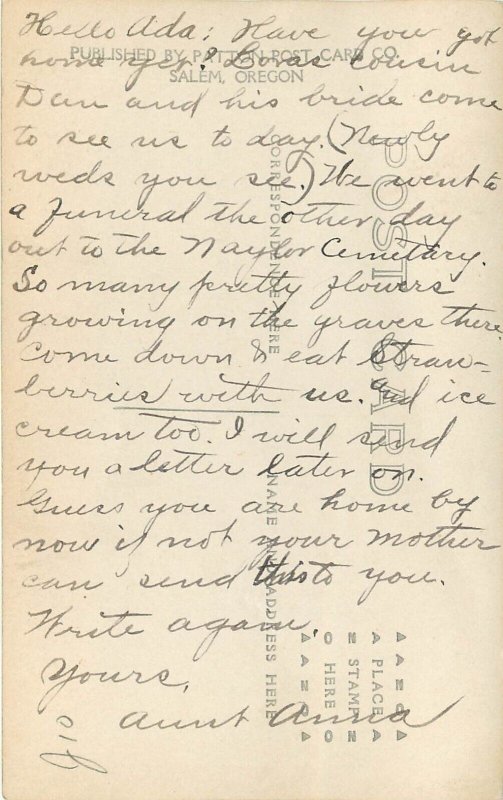 Hello Ada: Have you got
home yet? Loras cousin
Dan and his bride come
to see us to day. (Newly
weds you see.) We went to
a funeral the other day
out to the Naylor Cemetary.
So many pretty flowers
growing on the graves there.
Come down & eat straw-
berries with us. and ice
cream too. I will send
you a letter later on.
Guess you are home by
now if not your Mother
can send this to you.
Write again.
Yours,
Aunt Anna
PUBLISHED BY PATTON POST CARD CO.
SALEM, OREGON
POST CARD
CORRESPONDENCE HERE
NAME AND ADDRESS HERE
PLACE
STAMP
HERE